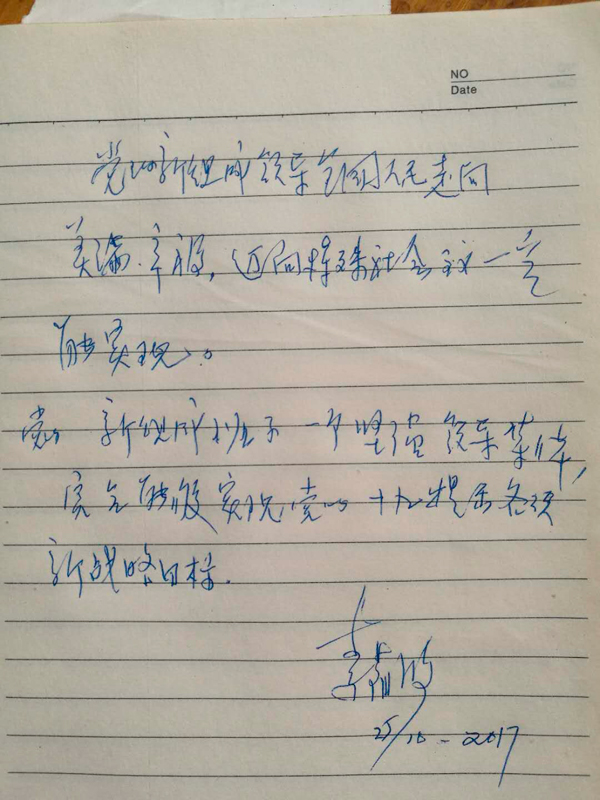 NO
Date
党的新组成领导全国人民走向
美满幸福,迈向特殊社会主义一定
能实现。
党的新组成班子一个坚强领导集体,
完全能够实现党的十九提出各项
新战略目标.
李
25/10-2017